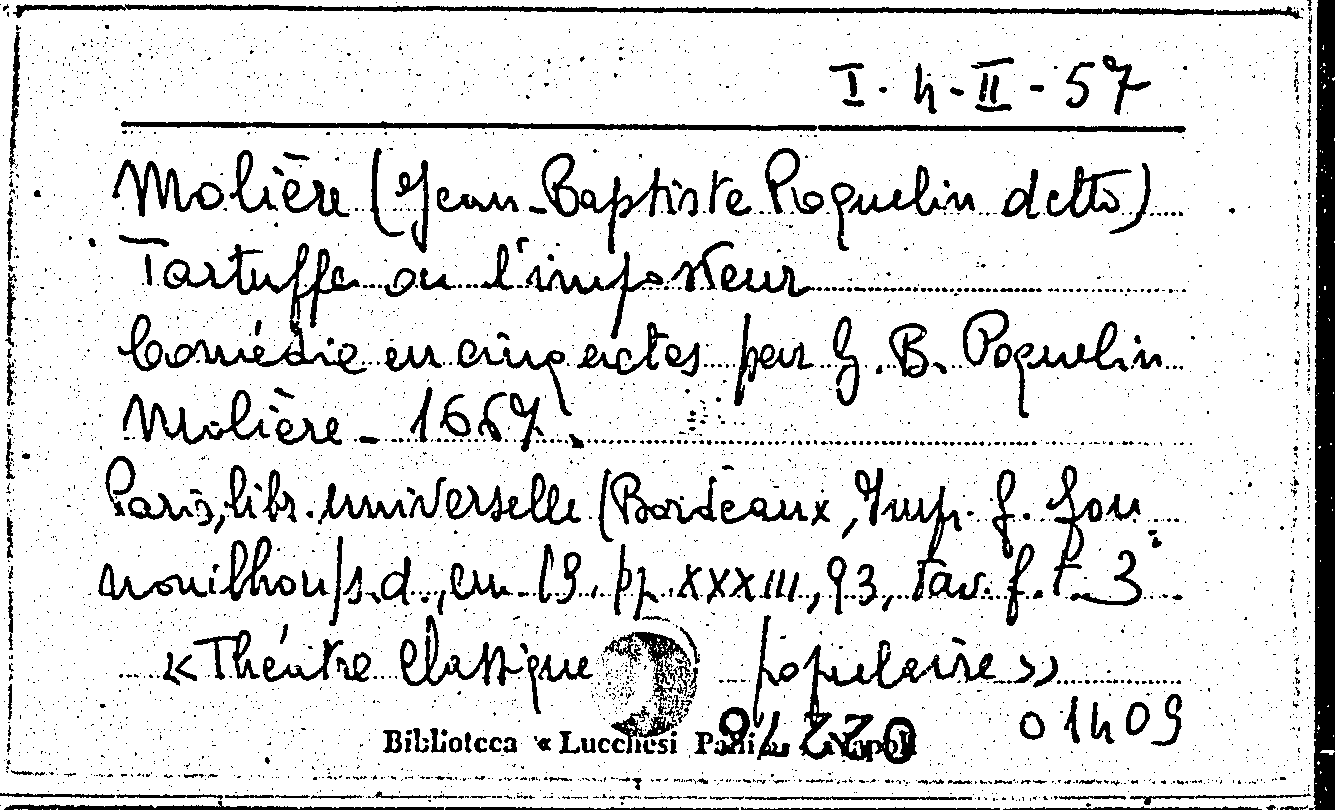 I. 4 - II - 57
Molière (Jean-Baptiste Poquelin detto)
Tartuffe ou l'imposteur
Comédie en cinq actes par G. B. Poquelin
Molière - 1667.
Paris, libr. universelle (Bordeaux, Imp. f. Gou=
nouilhou) s.d., cm 19. pp XXXIII, 93, tav. f.t. 3
«Théatre Classique populaire»
01409
Biblioteca « Lucchesi Palli